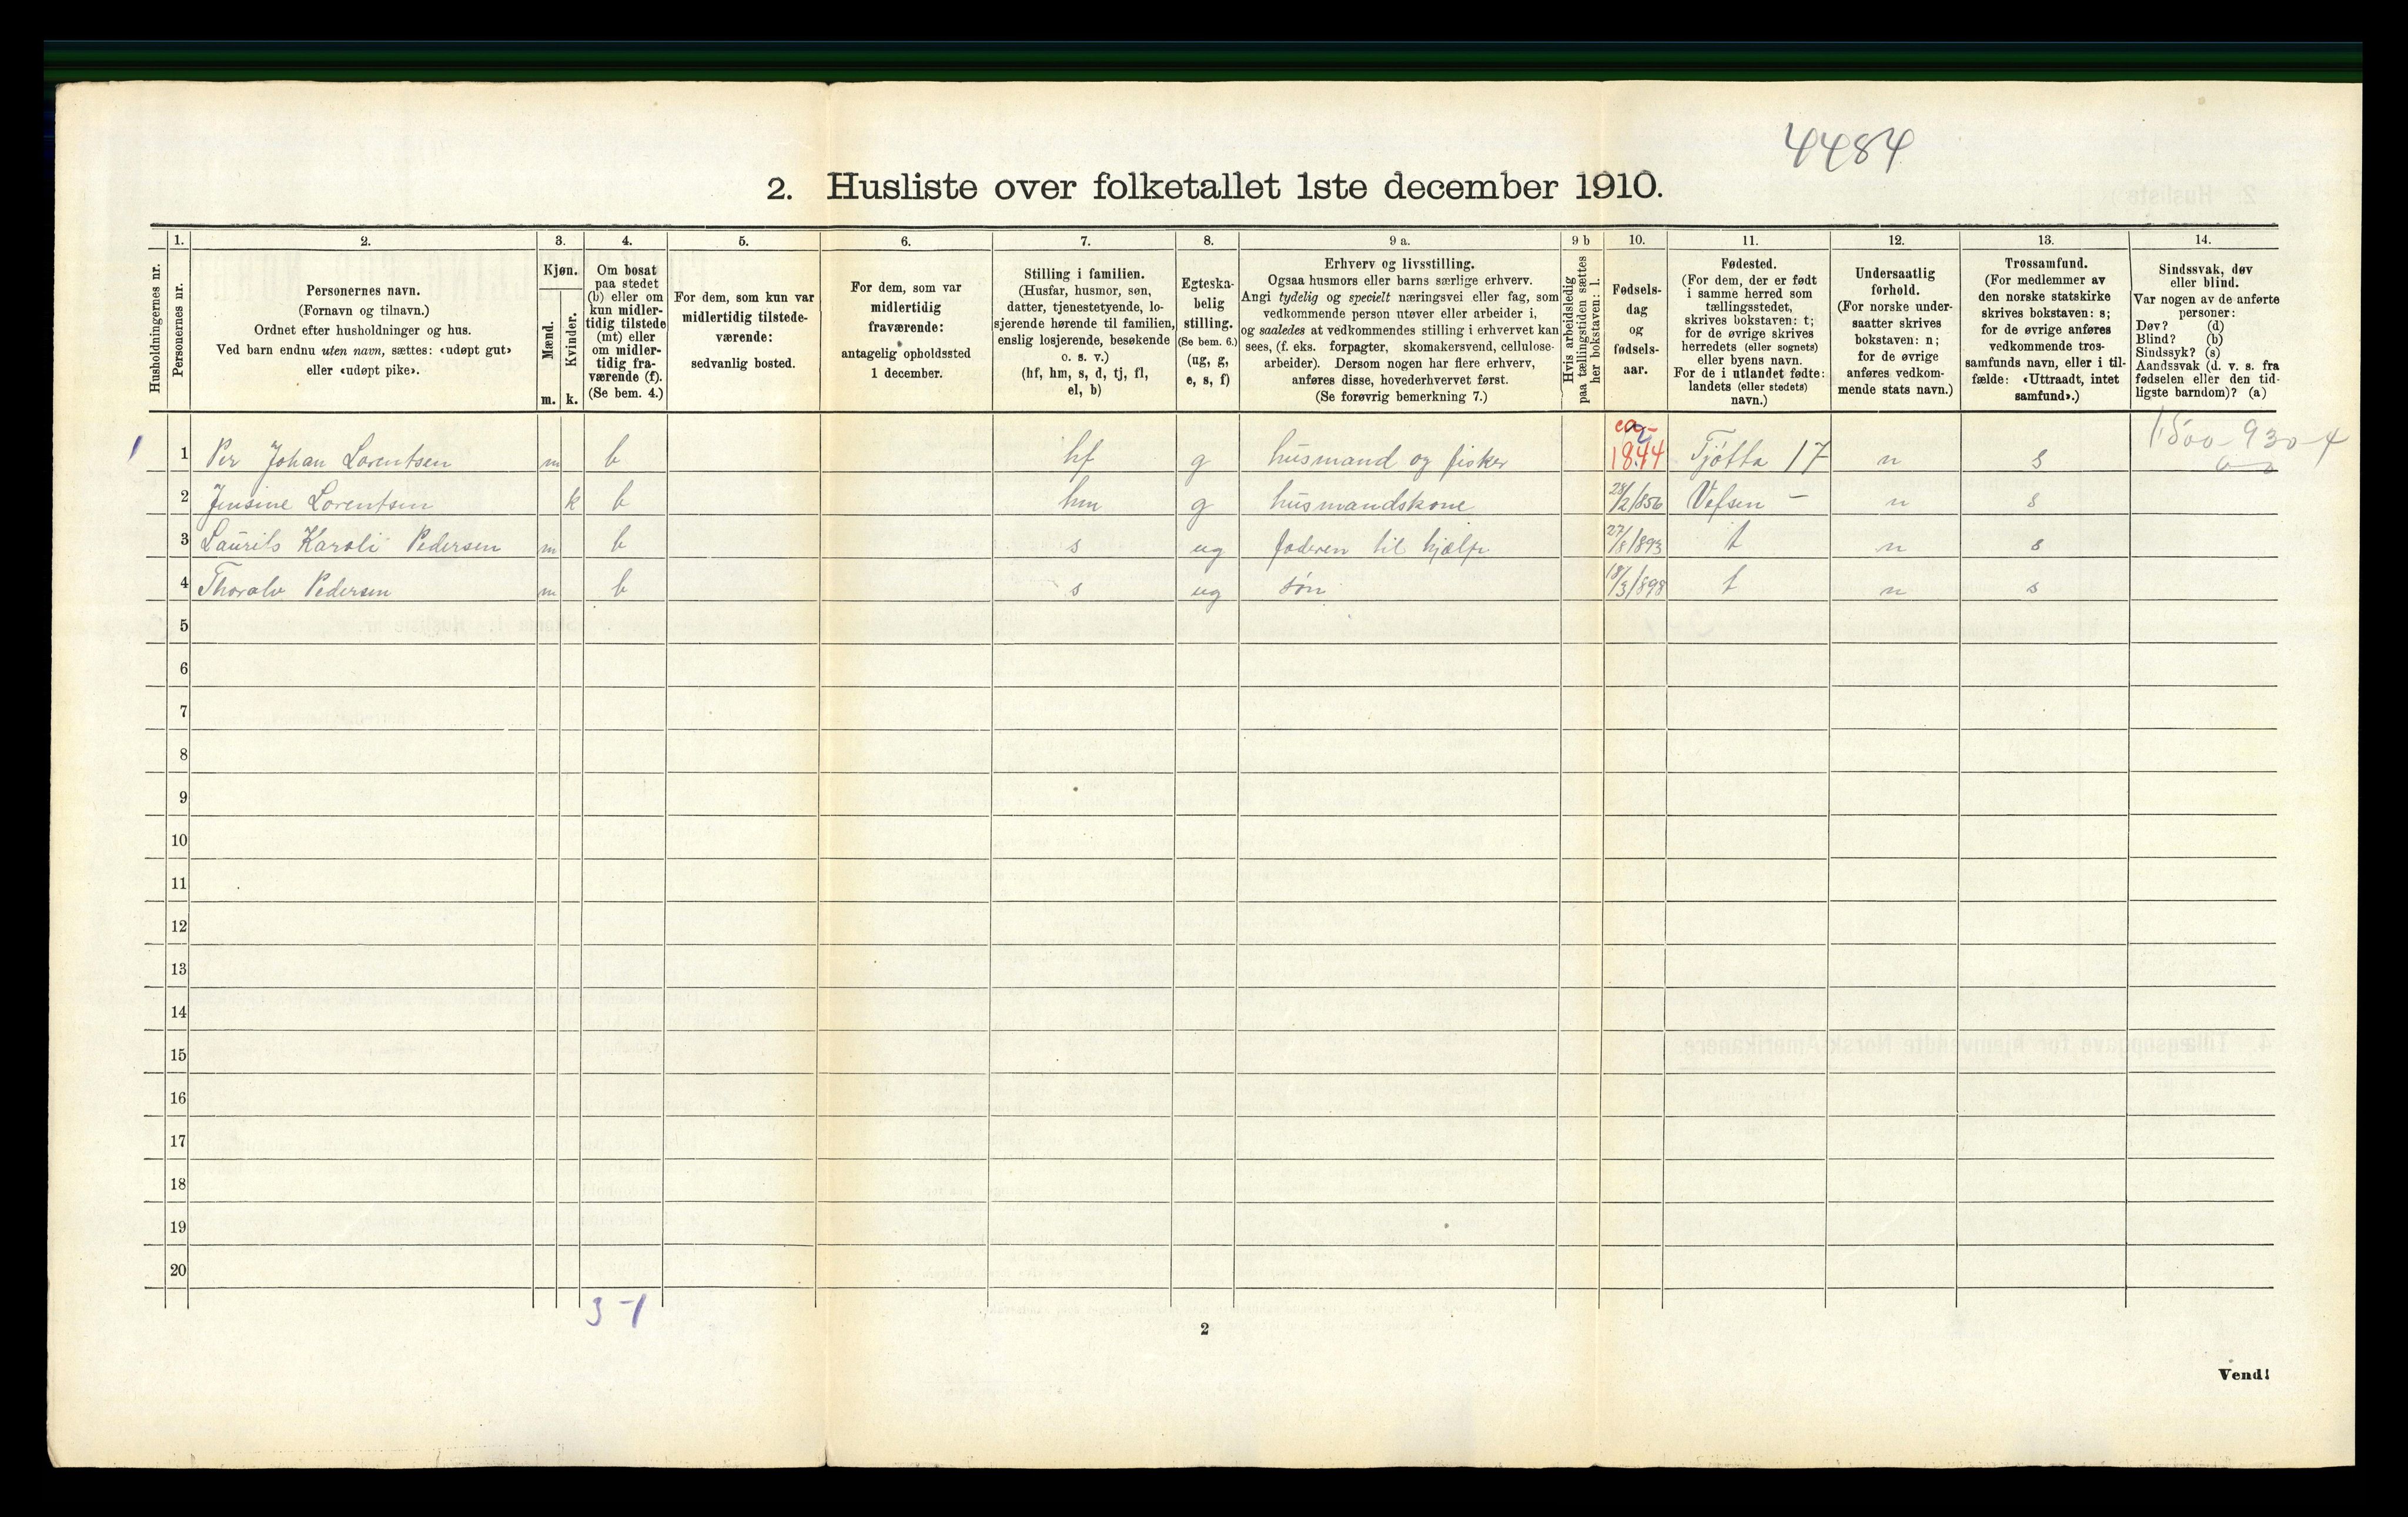 4484
2. Husliste over folketallet 1ste december 1910.
Husholdningernes nr.
1.
Personernes nr.
2.
Personernes navn.
(Fornavn og tilnavn.)
Ordnet efter husholdninger og hus.
Ved barn endnu uten navn, sættes: «udøpt gut»
eller «udøpt pike».
3.
Kjøn.
Mænd.
Kvinder.
m. k.
4.
Om bosat
paa stedet
(b) eller om
kun midler-
tidig tilstede
(mt) eller
om midler-
tidig fra-
værende (f).
(Se bem. 4.)
5.
For dem, som kun var
midlertidig tilstede-
værende:
sedvanlig bosted.
6.
For dem, som var
midlertidig
fraværende:
antagelig opholdssted
1 december.
7.
Stilling i familien.
(Husfar, husmor, søn,
datter, tjenestetyende, lo-
sjerende hørende til familien,
enslig losjerende, besøkende
o. s. v.)
(hf, hm, s, d, tj, fl,
el, b)
8.
Egteska-
belig
stilling.
(Se bem. 6.)
(ug, g,
e, s, f)
9 a.
Erhverv og livsstilling.
Ogsaa husmors eller barns særlige erhverv.
Angi tydelig og specielt næringsvei eller fag, som
vedkommende person utøver eller arbeider i,
og saaledes at vedkommendes stilling i erhvervet kan
sees, (f. eks. forpagter, skomakersvend, cellulose-
arbeider). Dersom nogen har flere erhverv,
anføres disse, hovederhvervet først.
(Se forøvrig bemerkning 7.)
9 b
Hvis arbeidsledig
paa tællingstiden sættes
her bokstaven: l.
10.
Fødsels-
dag
og
fødsels-
aar.
11.
Fødested.
(For dem, der er født
i samme herred som
tællingsstedet,
skrives bokstaven: t;
for de øvrige skrives
herredets (eller sognets)
eller byens navn.
For de i utlandet fødte:
landets (eller stedets)
navn.)
12.
Undersaatlig
forhold.
(For norske under-
saatter skrives
bokstaven: n;
for de øvrige
anføres vedkom-
mende stats navn.)
13.
Trossamfund.
(For medlemmer av
den norske statskirke
skrives bokstaven: s;
for de øvrige anføres
vedkommende tros-
samfunds navn, eller i til-
fælde: «Uttraadt, intet
samfund».)
14.
Sindssvak, døv
eller blind.
Var nogen av de anførte
personer:
Døv? (d)
Blind? (b)
Sindssyk? (s)
Aandssvak (d. v. s. fra
fødselen eller den tid-
ligste barndom)? (a)
1500-930-4
1 1 Per Johan Lorentsen m b hf g husmand og fisker ca- 1844 Tjøtta 17 n s
2 Jensine Lorentsen k b hm g husmandskone 28/2/856 Vefsen - n s
3 Laurits Karoli Pedersen m b s ug faderen til hjælp 27/8/893 t n s
4 Thoralv Pedersen m b s ug søn 18/3/898 t n s
5
6
7
8
9
10
11
12
13
14
15
16
17
18
19
20
3-1
2
Vend!